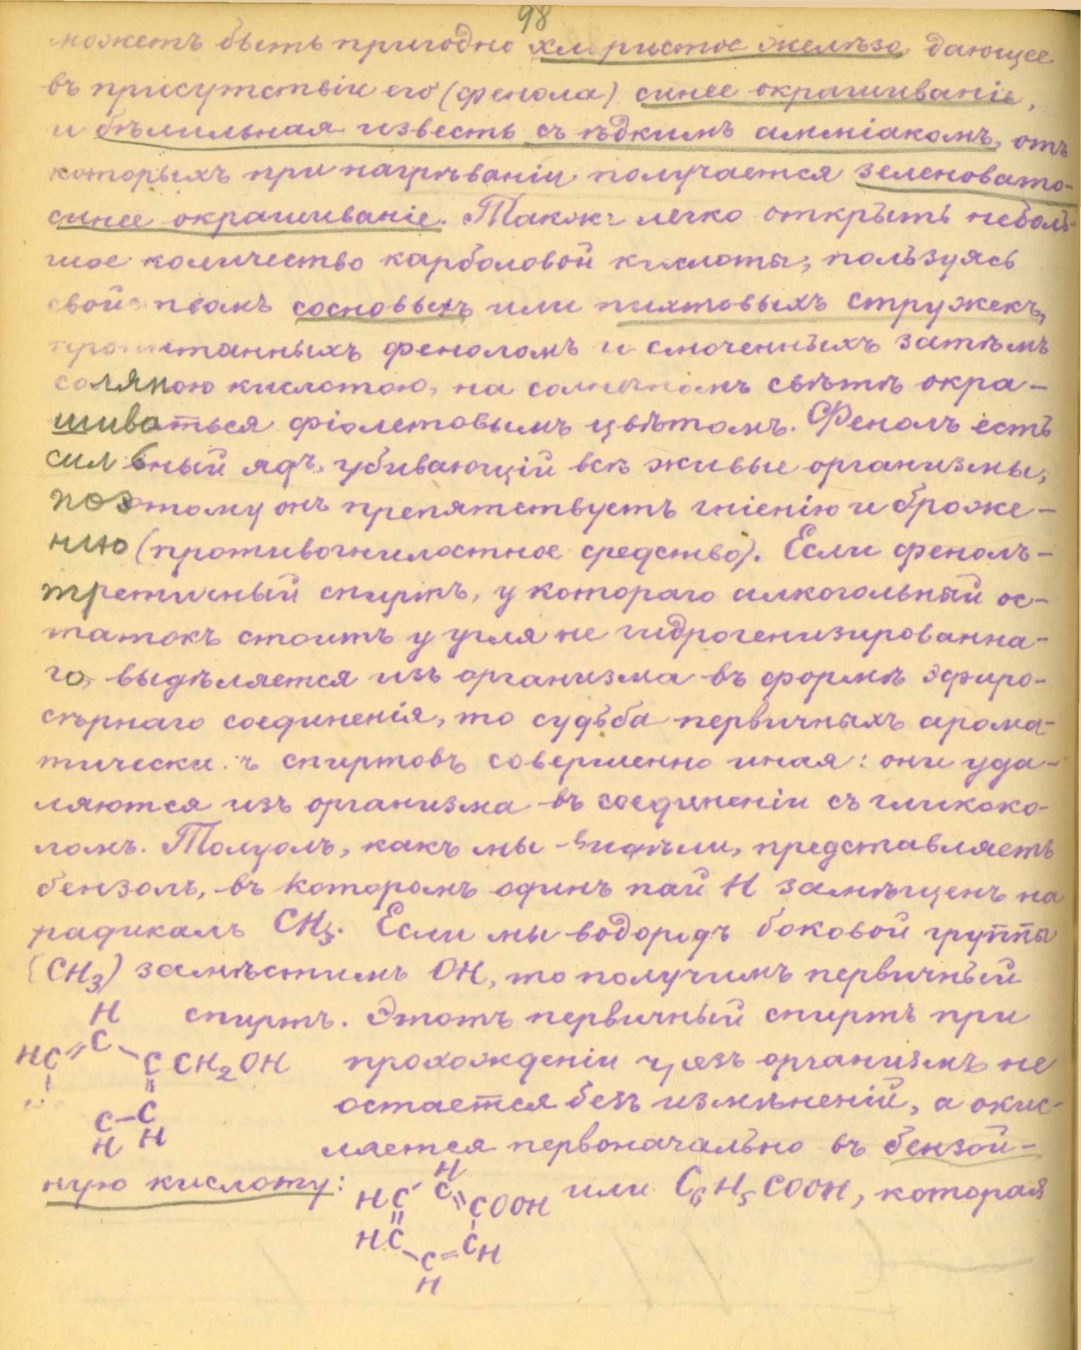 98
можетъ быть пригодно хлористое желѣзо дающее
въ присутствіи его (фенола) синее окрашиваніе,
и бѣлильная известь съ ѣдкимъ амміакомъ, отъ
которыхъ при нагрѣваніи получается зеленовато-
синее окрашиваніе. Также легко открыть неболь-
шое количество карболовой кислоты, пользуясь
свойствомъ сосновыхъ или пихтовыхъ стружекъ,
пропитанныхъ феноломъ и смоченныхъ затѣмъ
соляною кислотою, на солнечномъ свѣтѣ окра-
шиваться фіолетовымъ цвѣтомъ. Фенолъ есть
сильный ядъ, убивающій всѣ живые организмы,
поэтому онъ препятствуетъ гніенію и броже-
нію (противогнилостное средство). Если фенолъ-
третичный спиртъ, у котораго алкогольный ос-
татокъ стоитъ у угля не гидрогенизированна-
го, выдѣляется изъ организма въ формѣ эфиро-
сѣрнаго соединенія, то судьба первичныхъ арома-
тически.ъ спиртовъ совершенно иная: они уда-
ляются изъ организма въ соединеніи съ гликоко-
ломъ. Толуолъ, какъ мы видѣли, представляетъ
бензолъ, въ которомъ одинъ пай H замѣщенъ на
радикалъ CH₃. Если мы водородъ боковой группы
(CH₃) замѣстимъ OH, то получимъ первичный
H спиртъ. Этотъ первичный спиртъ при
HC = C - C CH₂OH прохожденіи чрезъ организмъ не
остается безъ измѣненій, а окис-
C-C
H H
ляется первоначально въ бензой-
ную кислоту: HC C H COOH или C₆H₅COOH, которая
HC C CH
C
H